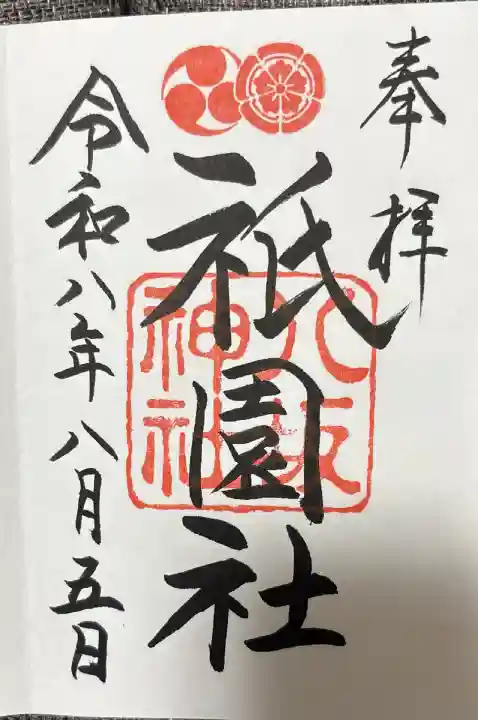 奉拝
祇園社
八坂
神社
令和八年八月五日